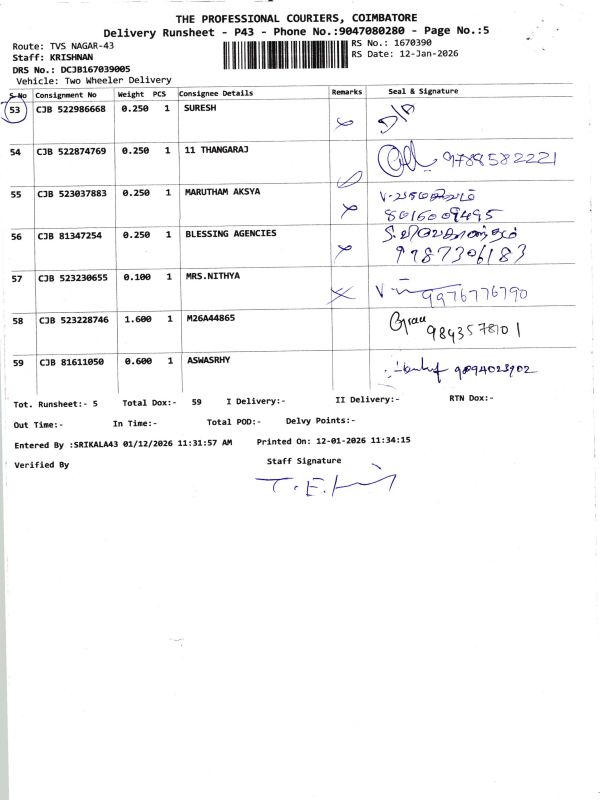 THE PROFESSIONAL COURIERS, COIMBATORE
Delivery Runsheet - P43 - Phone No.:9047080280 - Page No.:5
Route: TVS NAGAR-43
RS No.: 1670390
Staff: KRISHNAN
RS Date: 12-Jan-2026
DRS No.: DCJB167039005
Vehicle: Two Wheeler Delivery
S.No Consignment No Weight PCS Consignee Details Remarks Seal & Signature
53 CJB 522986668 0.250 1 SURESH
54 CJB 522874769 0.250 1 11 THANGARAJ 9789582221
55 CJB 523037883 0.250 1 MARUTHAM AKSYA
8016009495
56 CJB 81347254 0.250 1 BLESSING AGENCIES
9787306183
57 CJB 523230655 0.100 1 MRS.NITHYA
9976776790
58 CJB 523228746 1.600 1 M26A44865
9843578101
59 CJB 81611050 0.600 1 ASWASRHY 9894023902
Tot. Runsheet:- 5 Total Dox:- 59 I Delivery:- II Delivery:- RTN Dox:-
Out Time:- In Time:- Total POD:- Delvy Points:-
Entered By :SRIKALA43 01/12/2026 11:31:57 AM Printed On: 12-01-2026 11:34:15
Verified By Staff Signature